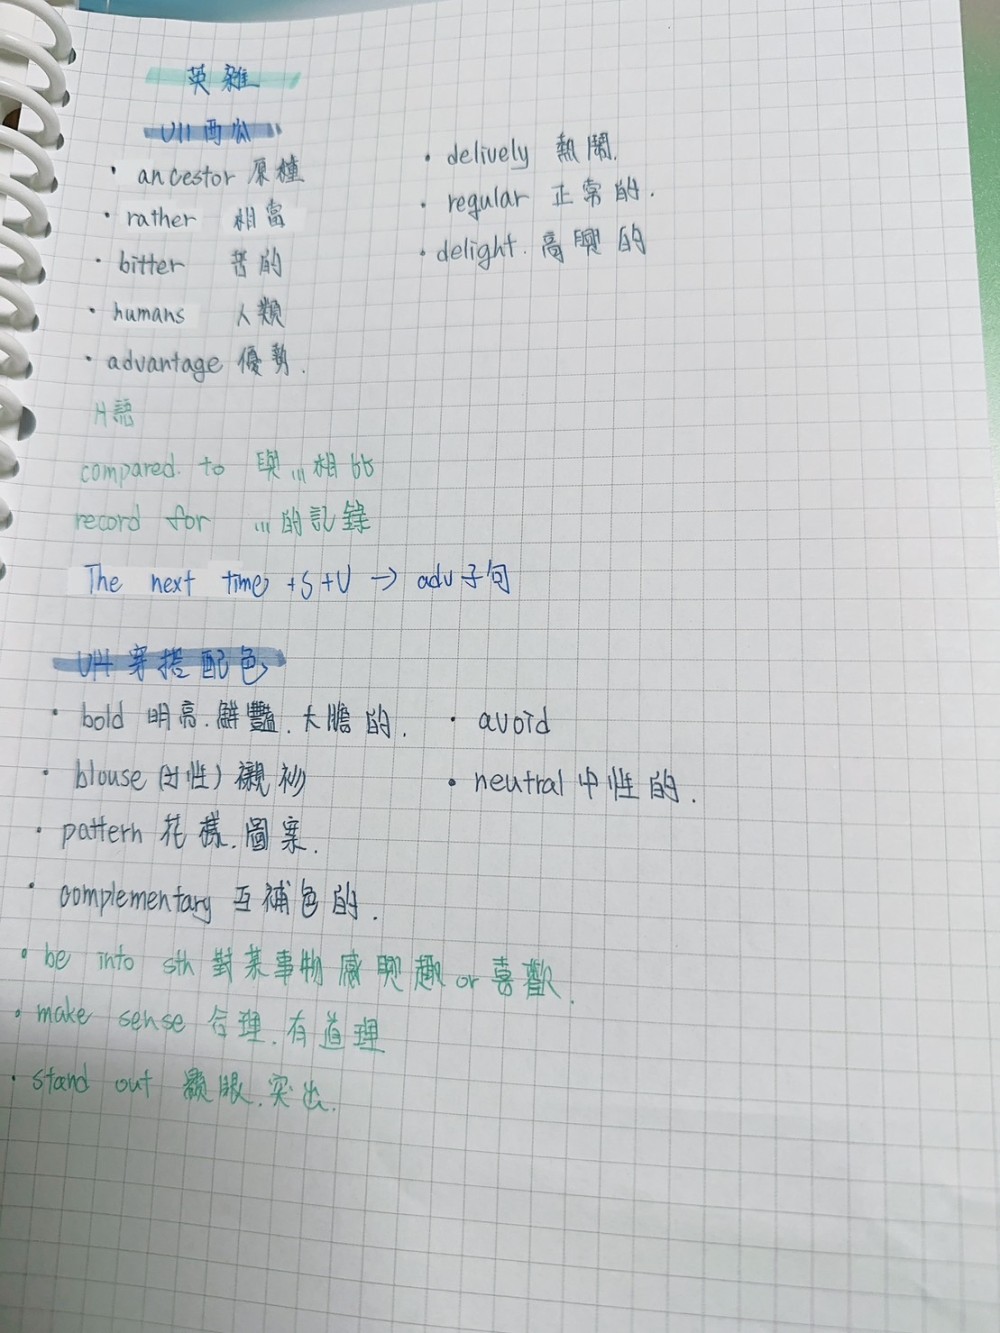 英雜
U11 西瓜
· ancestor 原種
· rather 相當
· bitter 苦的
· humans 人類
· advantage 優勢.
· delively 熱鬧.
· regular 正常的.
· delight. 高興的
片語
compared to 與...相比
record for ...的記錄
The next time +S+V → adv子句
U14 穿搭配色
· bold 明亮.鮮豔.大膽的.
· blouse (女性)襯衫
· pattern 花樣.圖案.
· complementary 互補色的.
· avoid
· neutral 中性的.
· be into sth 對某事物感興趣 or 喜歡.
· make sense 合理.有道理
· stand out 顯眼.突出.